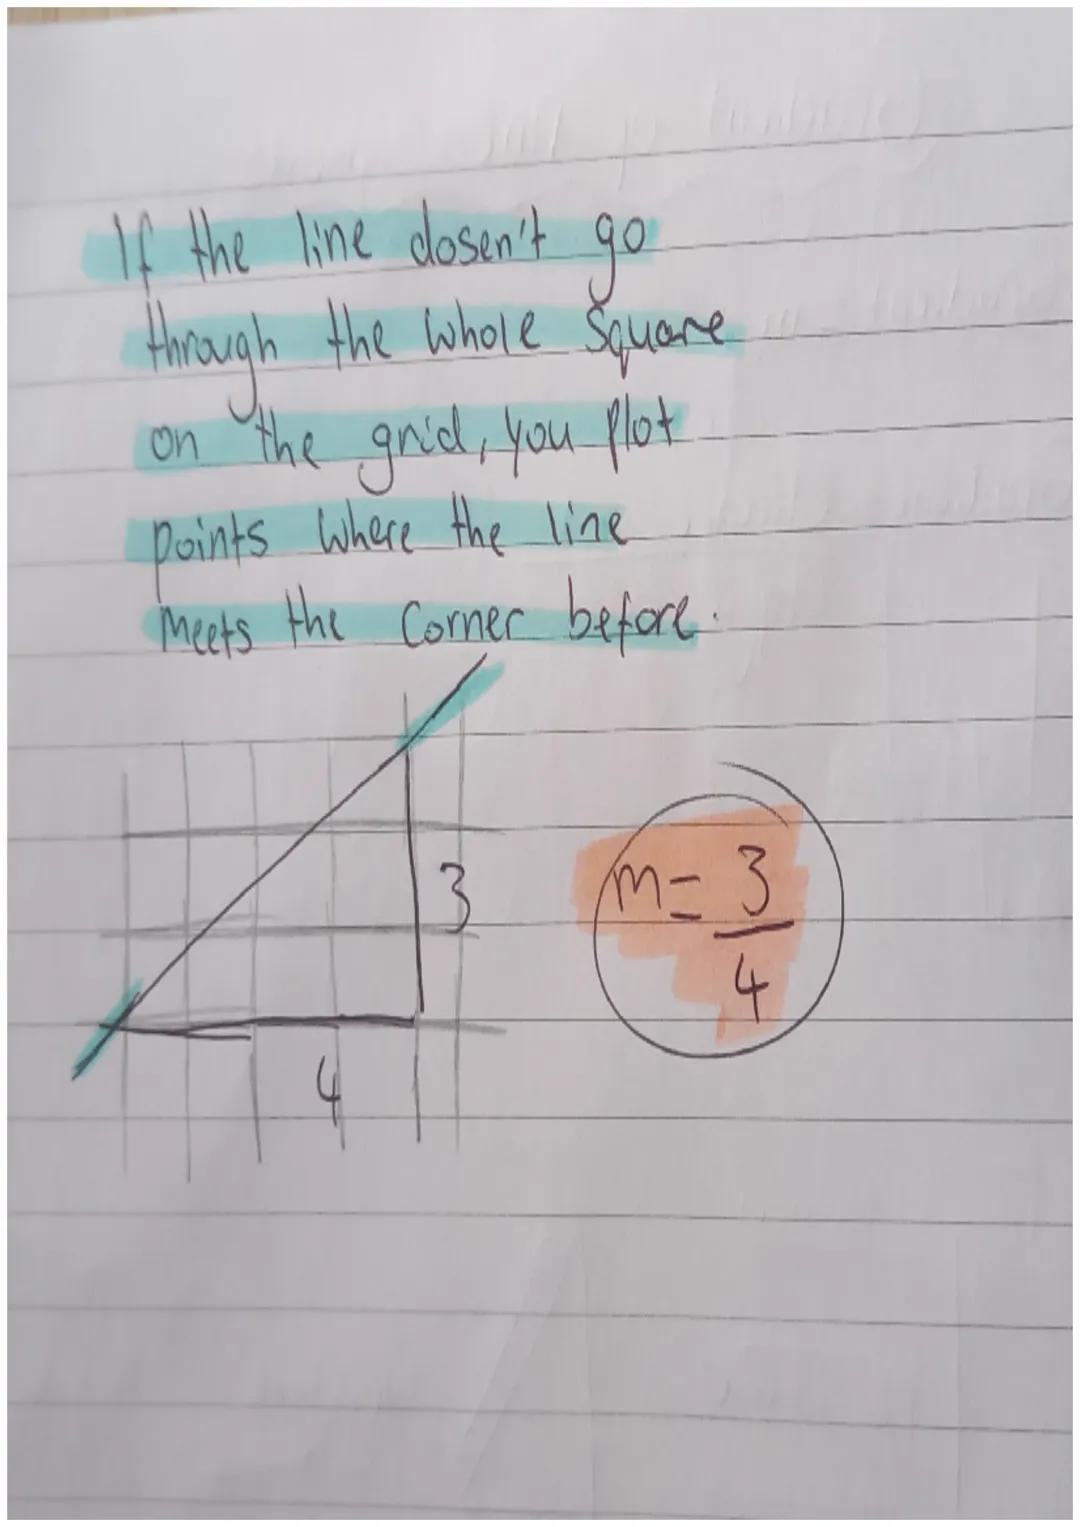 If the line dosen't go
through the whole square
on the grid, you plot
points where the line
meets the corner before.
3
m = 3
4
4